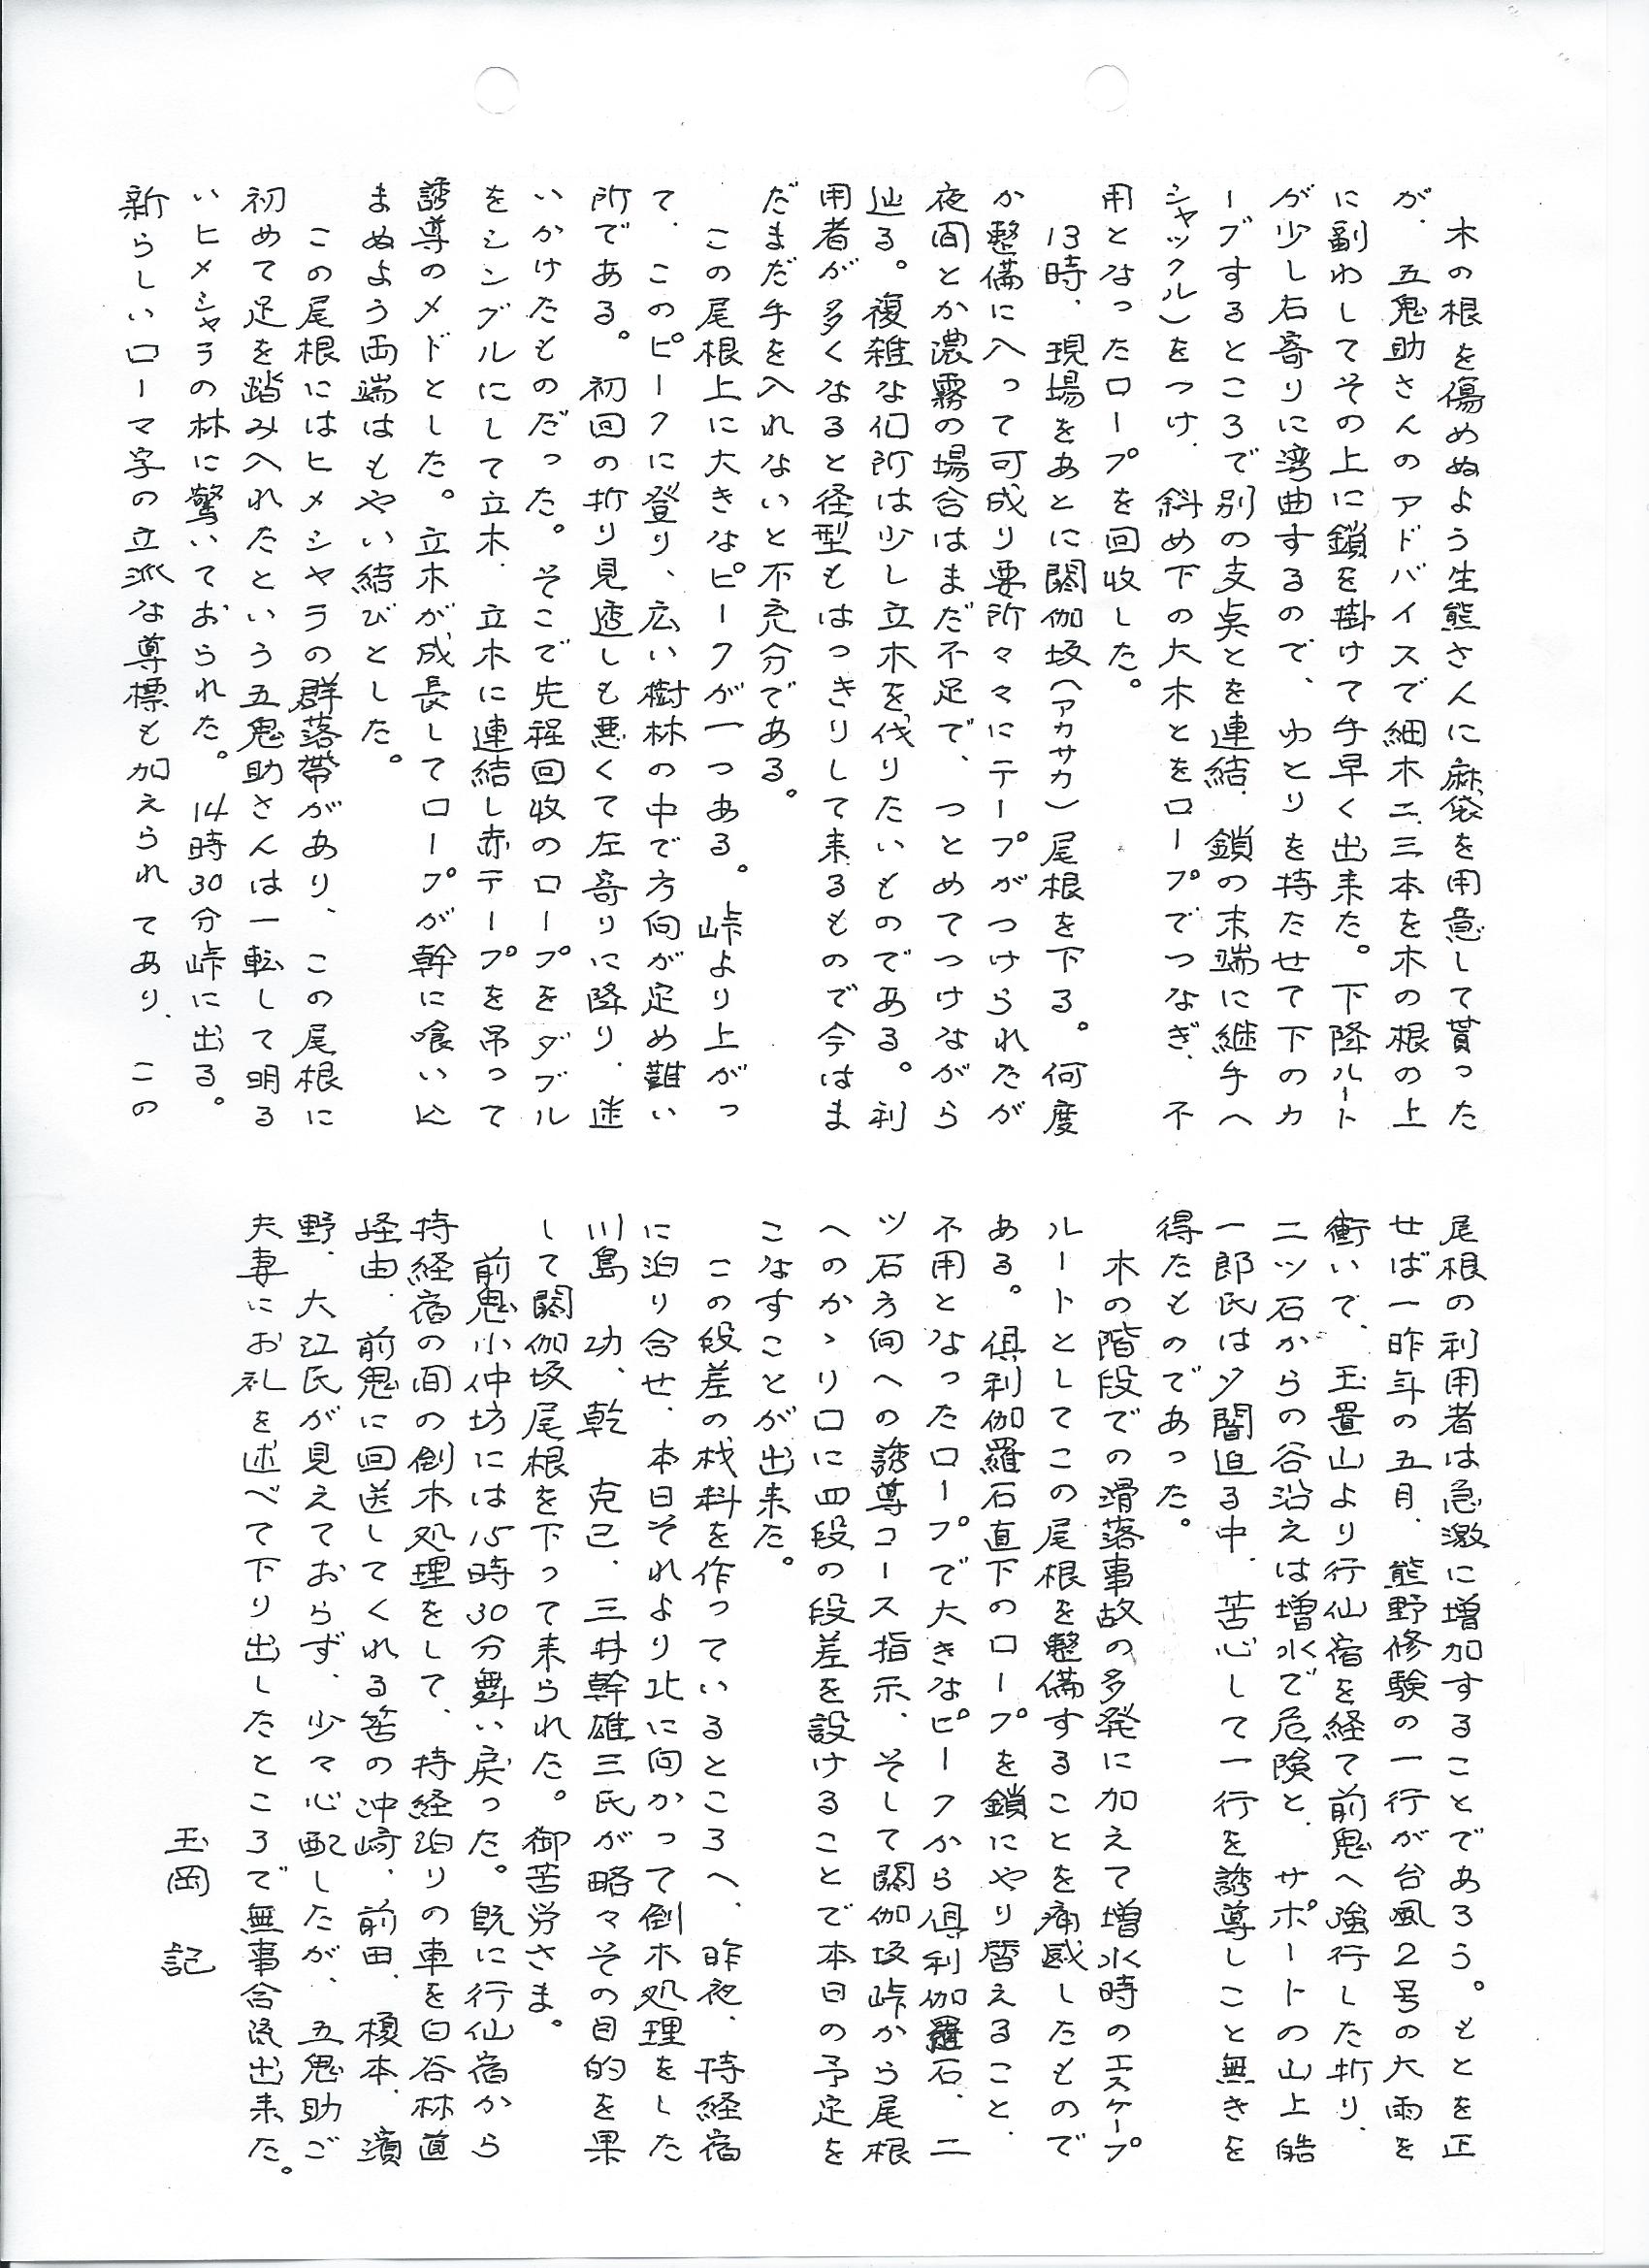 木の根を傷めぬよう生熊さんに麻袋を用意して貰った
が、五鬼助さんのアドバイスで細木二、三本を木の根の上
に副わしてその上に鎖を掛けて手早く出来た。下降ルート
が少し右寄りに湾曲するので、ゆとりを持たせて下のカ
ーブするところで別の支点とを連結、鎖の末端に継手へ
シャックル)をつけ、斜め下の大木とをロープでつなぎ、不
用となったロープを回収した。
13時、現場をあとに閼伽坂(アカサカ)尾根を下る。何度
か整備に入って可成り要所々々にテープがつけられたが
夜間とか濃霧の場合はまだ不足で、つとめてつけながら
辿る。複雑な個所は少し立木を伐りたいものである。利
用者が多くなると径型もはっきりして来るもので今はま
だまだ手を入れないと不充分である。
この尾根上に大きなピークが一つある。峠より上がっ
て、このピークに登り、広い樹林の中で方向が定め難い
所である。初回の折り見透しも悪くて左寄りに降り、迷
いかけたものだった。そこで先程回収のロープをダブル
をシングルにして立木、立木に連結し赤テープを吊って
誘導のメドとした。立木が成長してロープが幹に喰い込
まぬよう両端はもやい結びとした。
この尾根にはヒメシャラの群落帯があり、この尾根に
初めて足を踏み入れたという五鬼助さんは一転して明る
いヒメシャラの林に驚いておられた。14時30分峠に出る。
新らしいローマ字の立派な導標も加えられてあり、この
尾根の利用者は急激に増加することであろう。もとを正
せば一昨年の五月、熊野修験の一行が台風2号の大雨を
衝いて、玉置山より行仙宿を経て前鬼へ強行した折り、
二ツ石からの谷沿えは増水で危険と、サポートの山上皓
一郎氏は夕闇迫る中、苦心して一行を誘導しこと無きを
得たものであった。
木の階段での滑落事故の多発に加えて増水時のエスケープ
ルートとしてこの尾根を整備することを痛感したもので
ある。倶利伽羅石直下のロープを鎖にやり替えること、
不用となったロープで大きなピークから倶利伽羅石、二
ツ石方向への誘導コース指示、そして閼伽坂峠から尾根
へのかゝり口に四段の段差を設けることで本日の予定を
こなすことが出来た。
この段差の材料を作っているところへ、昨夜、持経宿
に泊り合せ、本日それより北に向かって倒木処理をした
川島 功、乾 克己、三井幹雄三氏が略々その目的を果
して閼伽坂尾根を下って来られた。御苦労さま。
前鬼小仲坊には15時30分舞い戻った。既に行仙宿から
持経宿の間の倒木処理をして、持経泊りの車を白谷林道
経由、前鬼に回送してくれる筈の沖崎、前田、榎本、濱
野、大江氏が見えておらず、少々心配したが、五鬼助ご
夫妻にお礼を述べて下り出したところで無事合流出来た。
玉岡 記